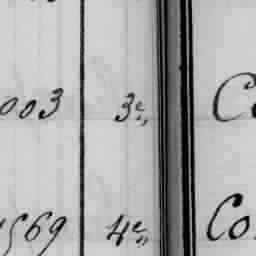 003 3e,, C
1569 4e,, Co